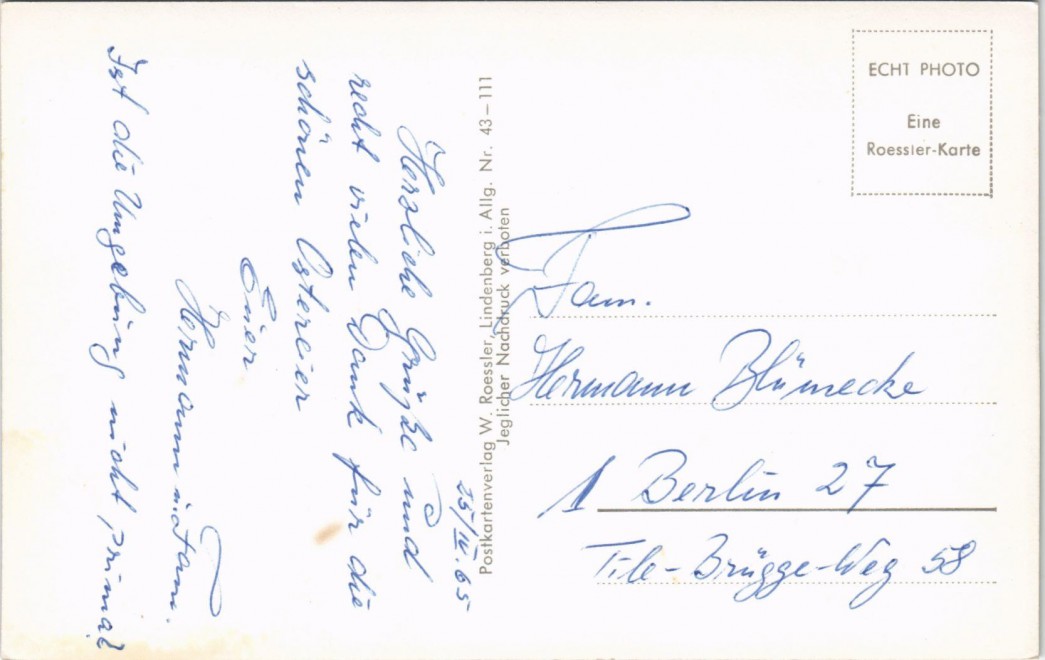 25/IV. 65
Herzliche Grüße und
recht vielen Dank für die
schönen Ostereier
Euer
Hermann u. Fam.
Ist die Umgebung nicht prima?
Postkartenverlag W. Roessler, Lindenberg i. Allg. Nr. 43–111
Jeglicher Nachdruck verboten
ECHT PHOTO
Eine
Roessler-Karte
Fam.
Hermann Blümecke
1 Berlin 27
Tile-Brügge-Weg 58